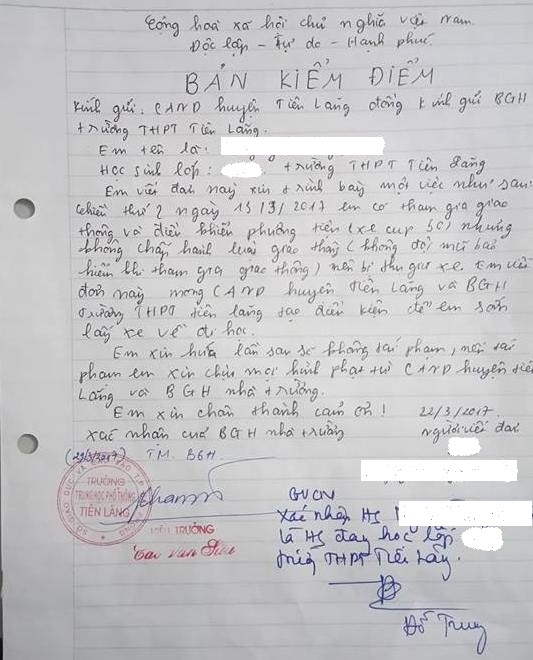 Cộng hoà xã hội chủ nghĩa việt nam
Độc lập - Tự do - Hạnh phúc
BẢN KIỂM ĐIỂM
Kính gửi: CAND huyện Tiên Lãng đồng kính gửi BGH
trường THPT Tiên Lãng.
Em tên là:
Học sinh lớp: trường THPT Tiên Lãng
Em viết đơn này xin trình bày một việc như sau:
chiều thứ 2 ngày 13/3/2017 em có tham gia giao
thông và điều khiển phương tiện (xe cup 50) nhưng
không chấp hành luật giao thông (không đội mũ bảo
hiểm khi tham gia giao thông) nên bị thu giữ xe. Em viết
đơn này mong CAND huyện Tiên Lãng và BGH
trường THPT tiên lãng tạo điều kiện để em sớm
lấy xe về đi học.
Em xin hứa lần sau sẽ không tái phạm, nếu tái
phạm em xin chịu mọi hình phạt từ CAND huyện tiên
Lãng và BGH nhà trường.
Em xin chân thành cảm ơn! 22/3/2017
xác nhận của BGH nhà trường người viết đơn
(22/3/2017) TM. BGH
SỞ GIÁO DỤC VÀ ĐÀO TẠO T.P
TRƯỜNG
TRUNG HỌC PHỔ THÔNG
TIÊN LÃNG
HIỆU TRƯỞNG
GVCN
Xác nhận HS
là HS đang học lớp
trường THPT Tiên Lãng.
Đỗ Trung